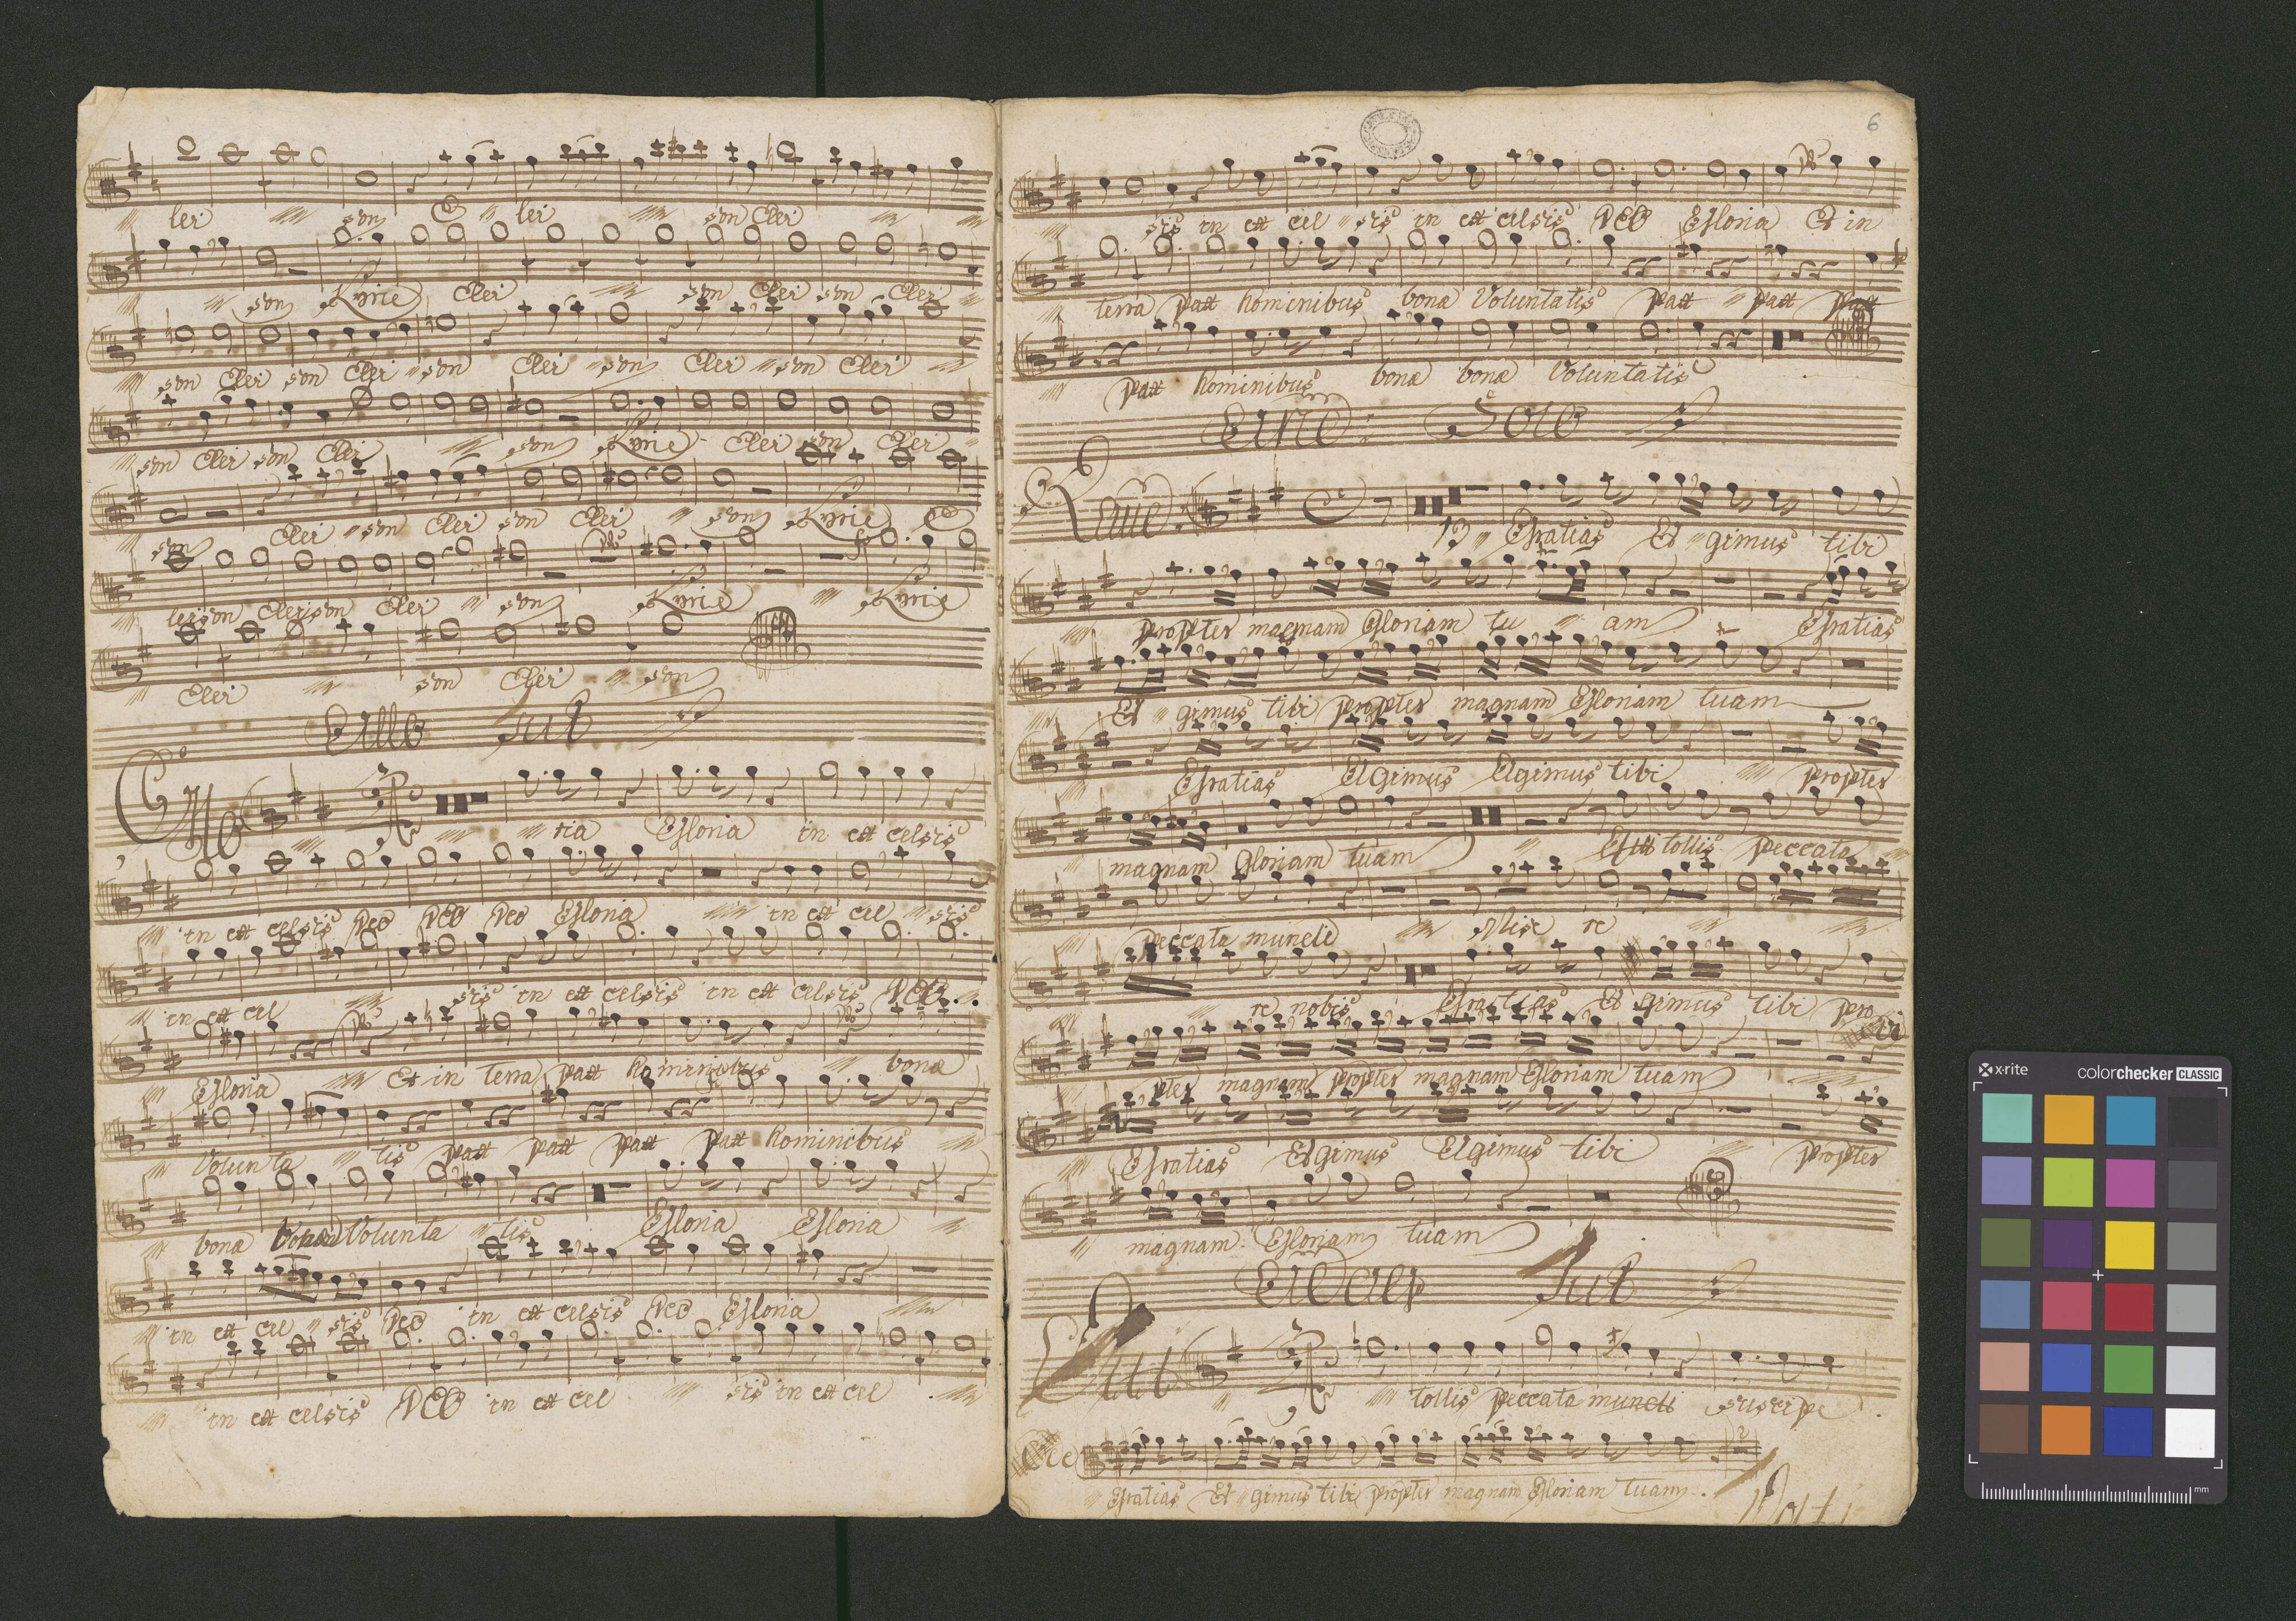 lei son E lei son Elei
son Kyrie Elei son Elei son Elei
son Elei son Elei son Elei son Elei son Elei
son Elei son Elei son Kyrie Elei son Elei
son Elei son Elei son Elei son Kyrie E
leison Eleison Elei son Kyrie Kyrie
Elei son Elei son
ria Gloria in ex celsis
in ex celsis Deo Deo Deo Gloria in ex cel sis
in ex cel sis in ex celsis in ex celsis Deo
Gloria Et in terra pax hominibus bonæ
Volunta tis pax pax pax pax hominibus
bonæ bonæ Volunta tis Gloria Gloria
in ex cel sis Deo in ex celsis Deo Gloria
in ex celsis Deo in ex cel sis in ex cel
6
sis in ex cel sis in ex celsis Deo Gloria Et in
terra pax hominibus bonæ Voluntatis pax pax pax
pax hominibus bonæ bonæ Voluntatis
Solo
13 Gratias gimus tibi
propter magnam Gloriam tu am Gratias
gimus tibi propter magnam Gloriam tuam
Gratias gimus gimus tibi propter
magnam Gloriam tuam tollis peccata
peccata mundi Mise re
re nobis Gratias gimus tibi pro
pter magnam propter magnam Gloriam tuam
Gratias gimus gimus tibi propter
magnam Gloriam tuam
tollis peccata mundi suscipe
Gratias gimus tibi propter magnam Gloriam tuam
x-rite colorchecker CLASSIC
mm